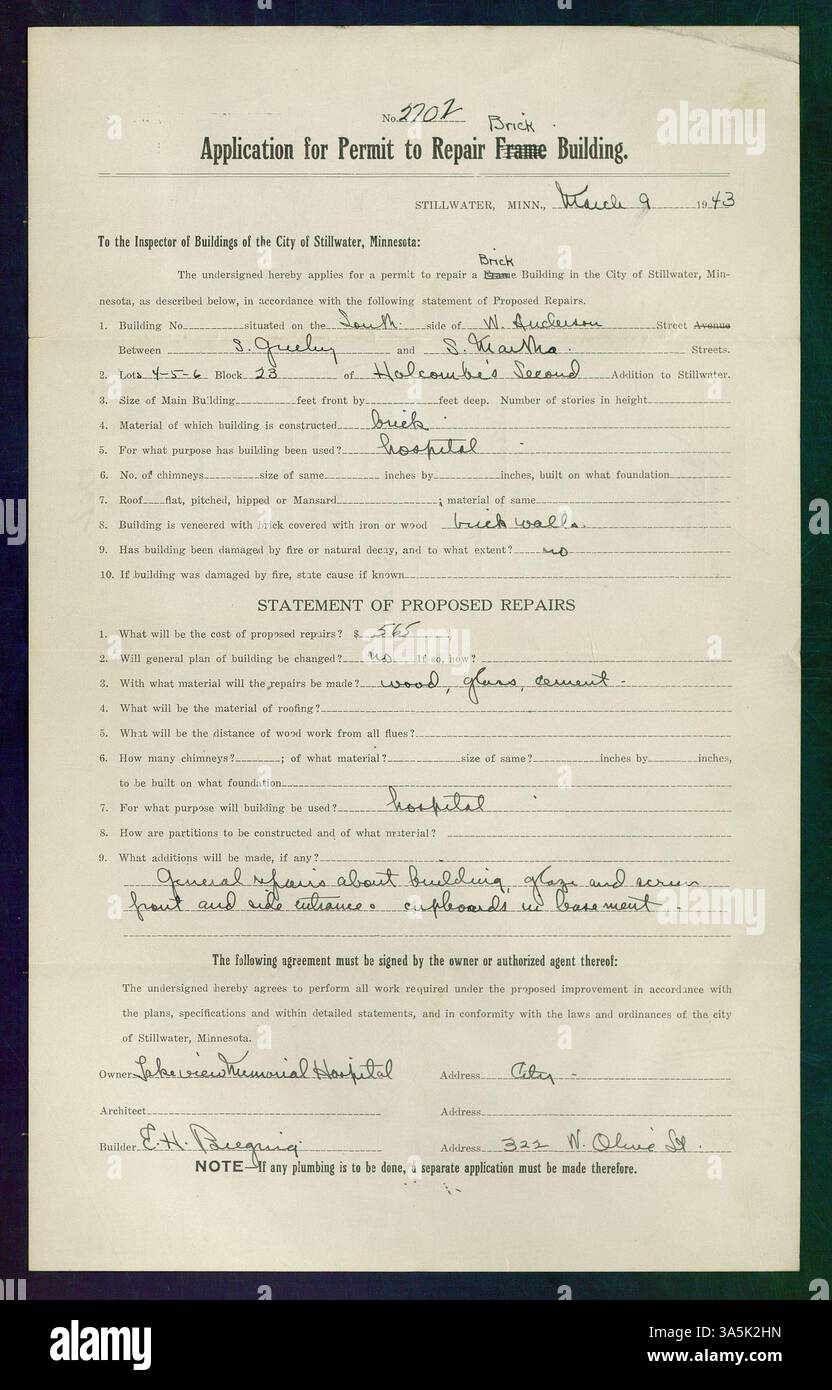 No. 2702
Brick
Application for Permit to Repair Frame Building.
STILLWATER, MINN., March 9 1943
To the Inspector of Buildings of the City of Stillwater, Minnesota:
Brick
The undersigned hereby applies for a permit to repair a Frame Building in the City of Stillwater, Min-
nesota, as described below, in accordance with the following statement of Proposed Repairs.
1. Building No. situated on the South side of W. Anderson Street Avenue
Between S. Greeley and S. Martha Streets.
2. Lots 4-5-6 Block 23 of Holcombe's Second Addition to Stillwater.
3. Size of Main Building feet front by feet deep. Number of stories in height
4. Material of which building is constructed brick
5. For what purpose has building been used? hospital
6. No. of chimneys size of same inches by inches, built on what foundation
7. Roof flat, pitched, hipped or Mansard ; material of same
8. Building is veneered with brick covered with iron or wood brick walls.
9. Has building been damaged by fire or natural decay, and to what extent? no
10. If building was damaged by fire, state cause if known
STATEMENT OF PROPOSED REPAIRS
1. What will be the cost of proposed repairs? $ 565
2. Will general plan of building be changed? no If so, how?
3. With what material will the repairs be made? wood, glass, cement
4. What will be the material of roofing?
5. What will be the distance of wood work from all flues?
6. How many chimneys? ; of what material? size of same? inches by inches,
to be built on what foundation
7. For what purpose will building be used? hospital
8. How are partitions to be constructed and of what material?
9. What additions will be made, if any?
General repairs about building, glaze and screen
front and side entrance. cupboards in basement
The following agreement must be signed by the owner or authorized agent thereof:
The undersigned hereby agrees to perform all work required under the proposed improvement in accordance with
the plans, specifications and within detailed statements, and in conformity with the laws and ordinances of the city
of Stillwater, Minnesota.
Owner Lakeview Memorial Hospital Address City
Architect Address
Builder E. H. Address 322 W. Olive St.
NOTE—If any plumbing is to be done, a separate application must be made therefore.
alamy
Image ID: 3A5K2HN
www.alamy.com